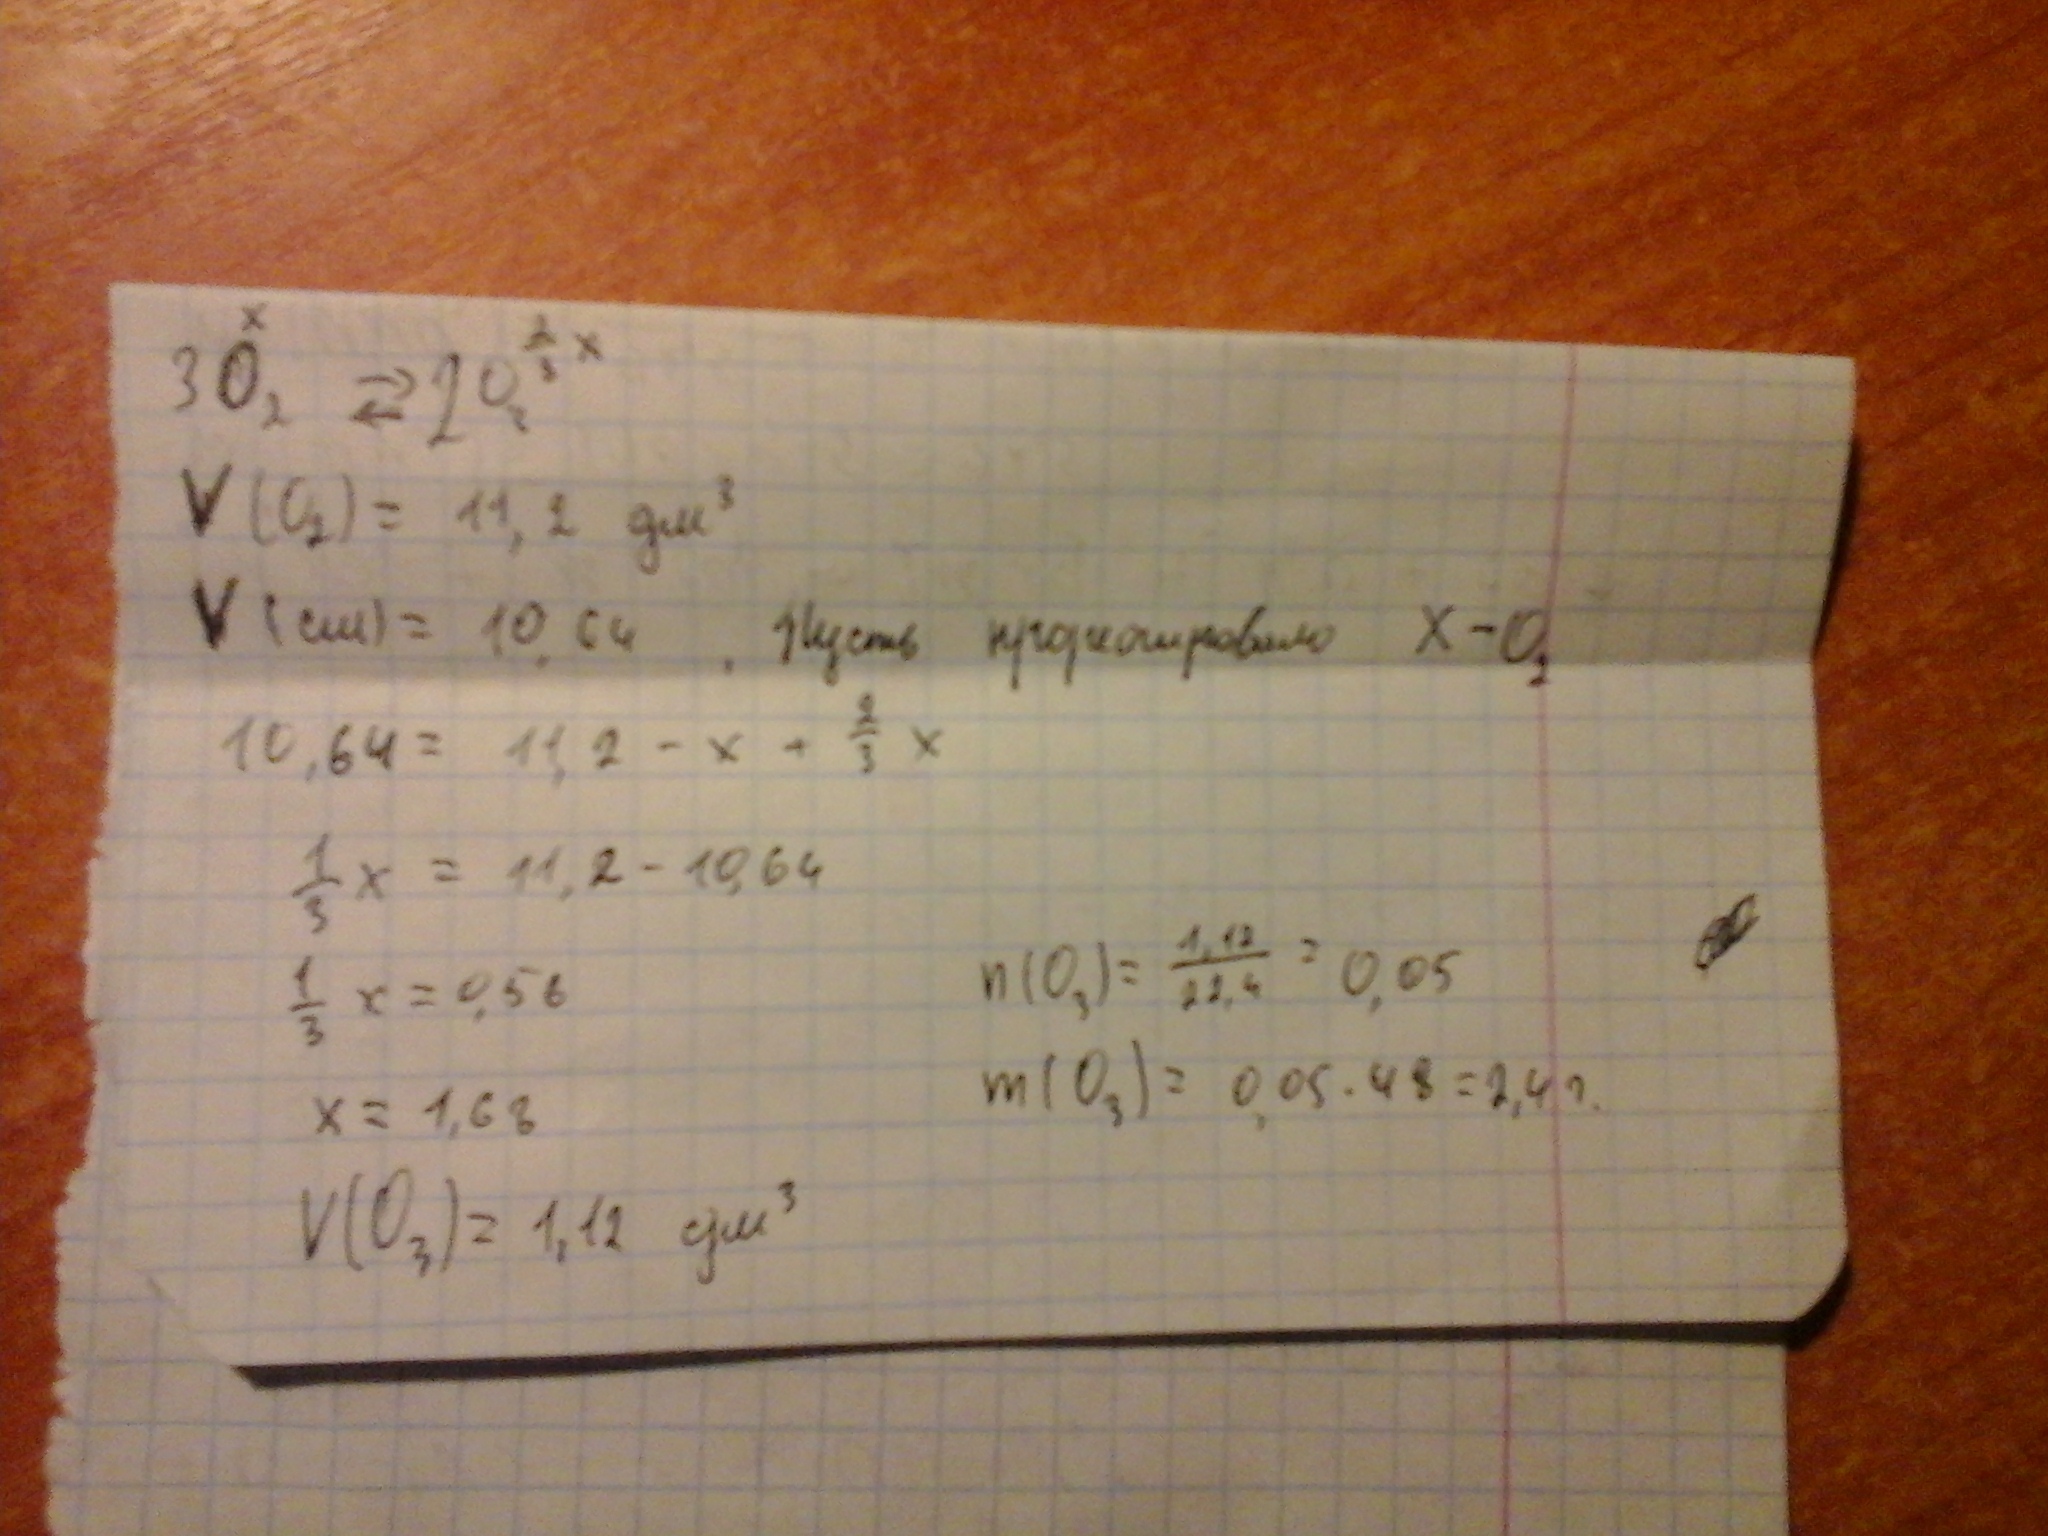 3O₂ ⇄ 2O₃
x
2/3 x
V(O₂) = 11,2 дм³
V(см) = 10,64. Пусть прореагировало X - O₂
10,64 = 11,2 - x + 2/3 x
1/3 x = 11,2 - 10,64
1/3 x = 0,56
x = 1,68
V(O₃) = 1,12 дм³
n(O₃) = 1,12/22,4 = 0,05
m(O₃) = 0,05 · 48 = 2,4 г.